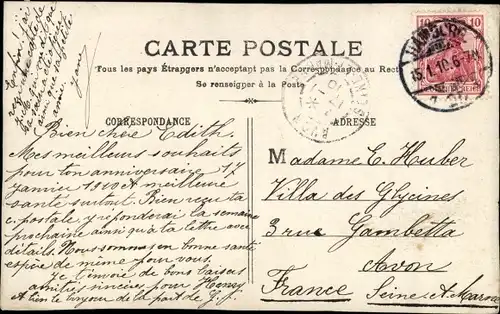 CARTE POSTALE
Tous les pays Étrangers n'acceptant pas la Correspondance au Recto
Se renseigner à la Poste
CORRESPONDANCE
ADRESSE
Bien chère Edith.
Mes meilleurs souhaits
pour ton anniversaire 17
janvier 1910 et meilleure
santé surtout. Bien reçu ta
c. postale, y réponderai la semaine
prochaine ainsi qu'à la lettre avec
détails. Nous sommes en bonne santé
espère de même pour vous.
Je t'envoie de bons baisers
amitiés sincères pour Henry
et bien le bonjour de la part de
Madame E. Huber
Villa des Glycines
3 rue Gambetta
Avon
France Seine et Marne
10 10
15.1.10.6-7